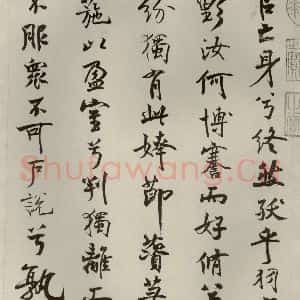 亡身兮終然殀乎羽
野汝何博謇而好脩兮
紛獨有此姱節薋菉
葹以盈室兮判獨離而
不服衆不可戶說兮孰
Shufawang.cn